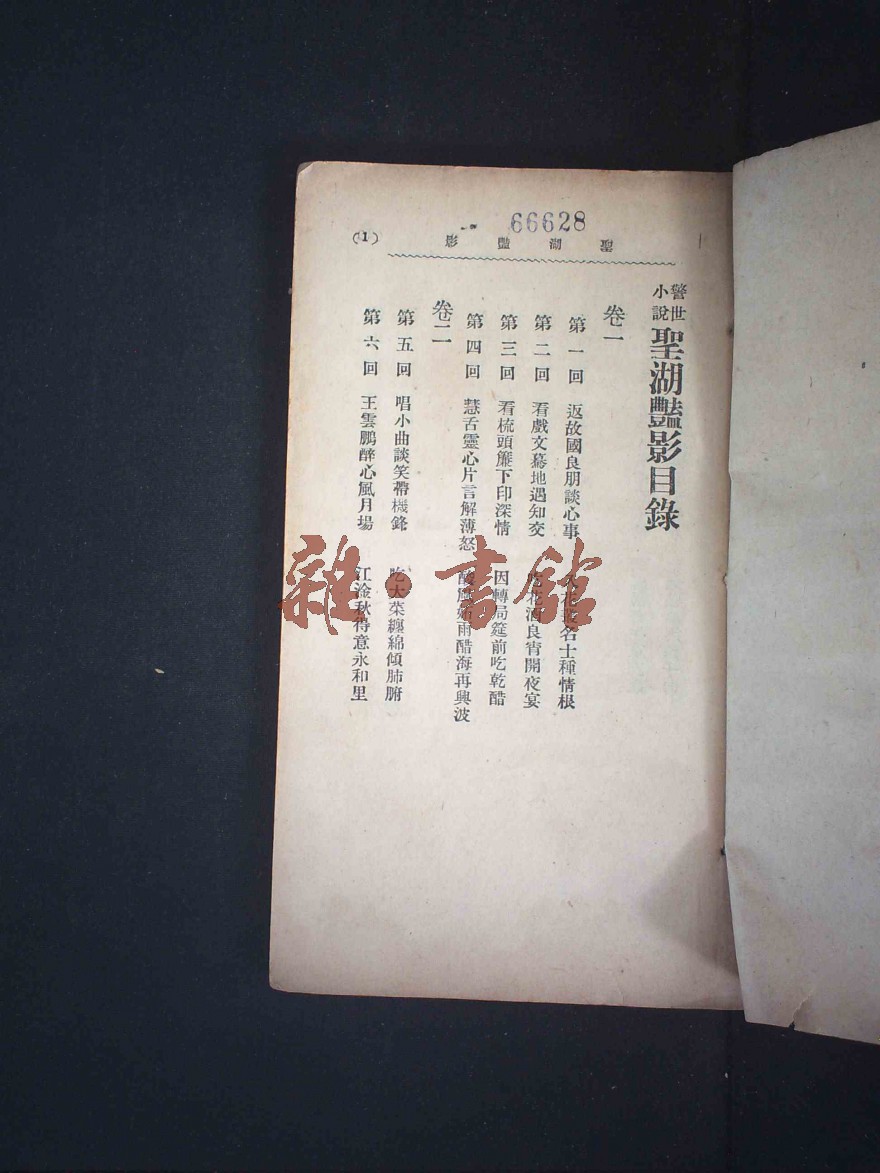 66628
聖湖豔影
(1)
警世小說 聖湖豔影目錄
卷一
第一回 返故國良朋談心事 名士種情根
第二回 看戲文驀地遇知交 吃花酒良宵開夜宴
第三回 看梳頭簾下印深情 因轉局筵前吃乾醋
第四回 慧舌靈心片言解薄怒 酸風妬雨醋海再興波
卷二
第五回 唱小曲談笑帶機鋒 吃大菜纏綿傾肺腑
第六回 王雲鵬醉心風月場 江淦秋得意永和里
雜·書館